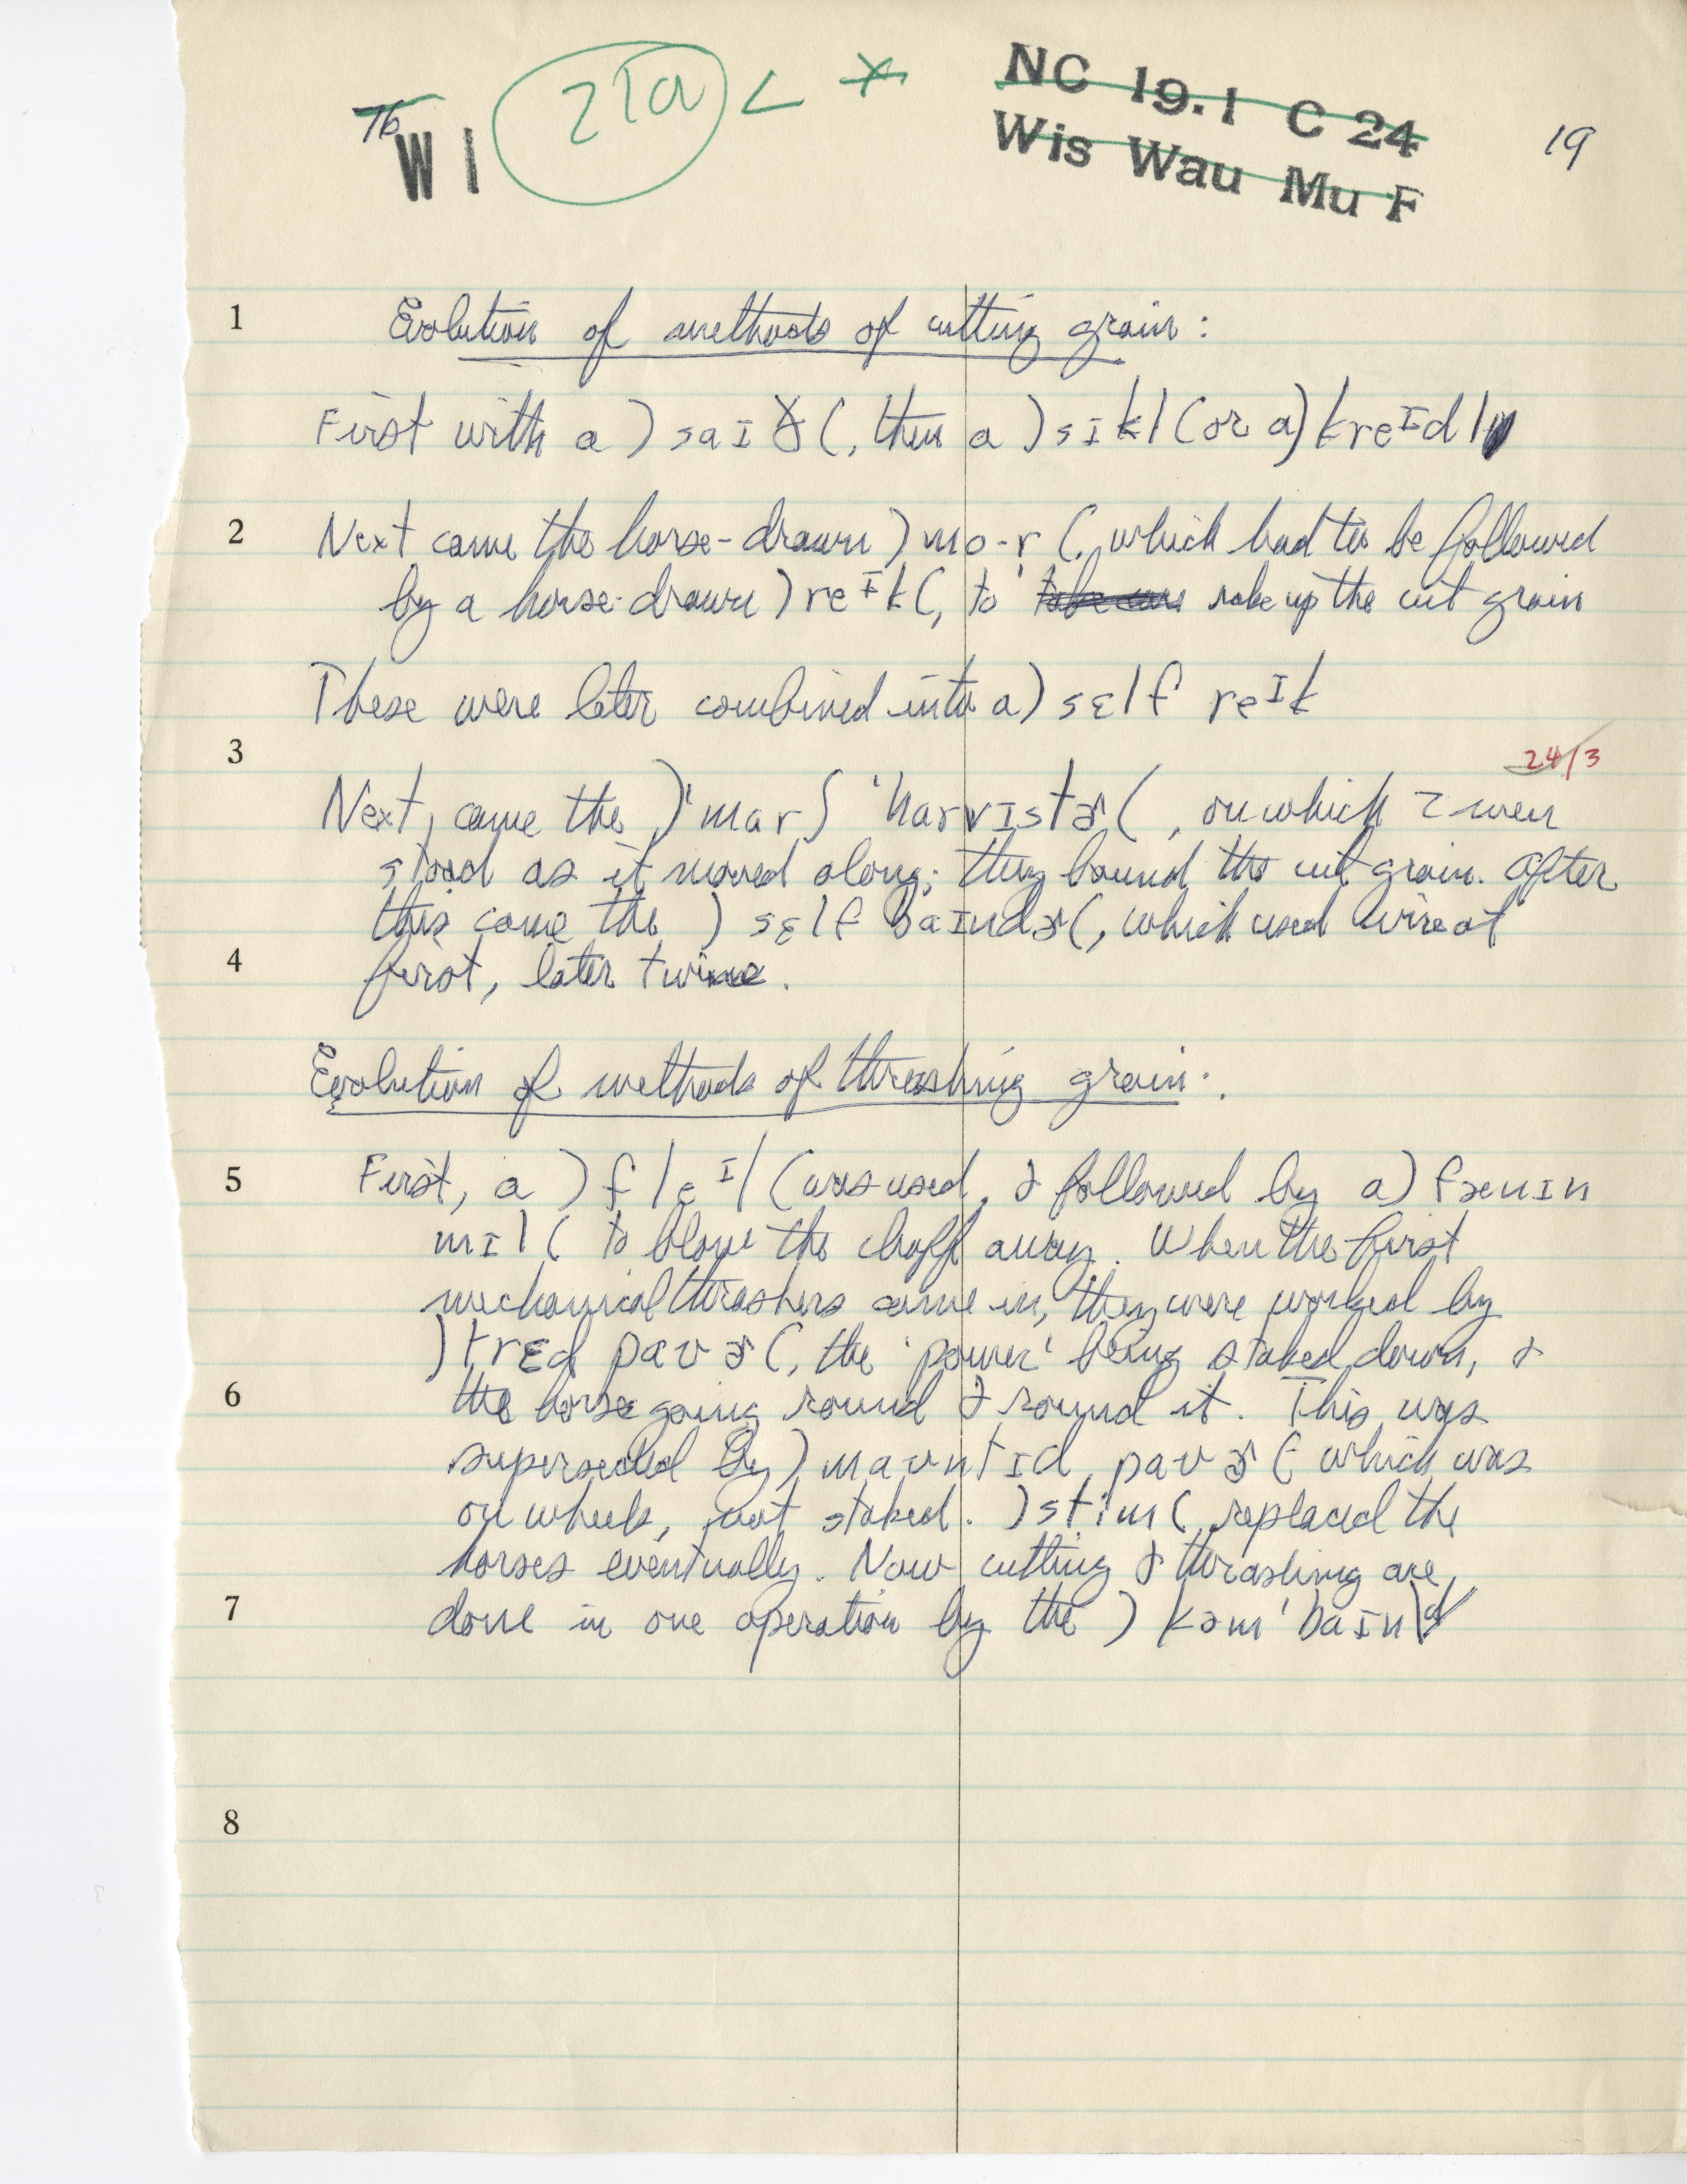 76
W 1
21a < *
NC 19.1 C 24
Wis Wau Mu F
19
1
Evolution of methods of cutting grain:
First with a ) saɪð (, then a ) sɪkl ( or a ) kreɪdl
2
Next came the horse-drawn ) mo-r (, which had to be followed
by a horse-drawn ) reɪk (, to rake up the cut grain
These were later combined into a ) sɛlf reɪk
3
24/3
Next, came the ) ˈmarʃ ˈharvɪstɚ (, on which 2 men
stood as it moved along; they bound the cut grain. After
this came the ) sɛlf baɪndɚ (, which used wire at
4
first, later twine.
Evolution of methods of thrashing grain:
5
First, a ) fleɪl ( was used, & followed by a ) fænɪn
mɪl ( to blow the chaff away. When the first
mechanical thrashers came in, they were worked by
) trɛd paʊɚ (, the 'power' being staked down, &
6
the horse going round & round it. This was
superseded by ) maʊntɪd paʊɚ ( which was
on wheels, not staked. ) stim ( replaced the
horses eventually. Now cutting & thrashing are
7
done in one operation by the ) kəmˈbaɪn
8